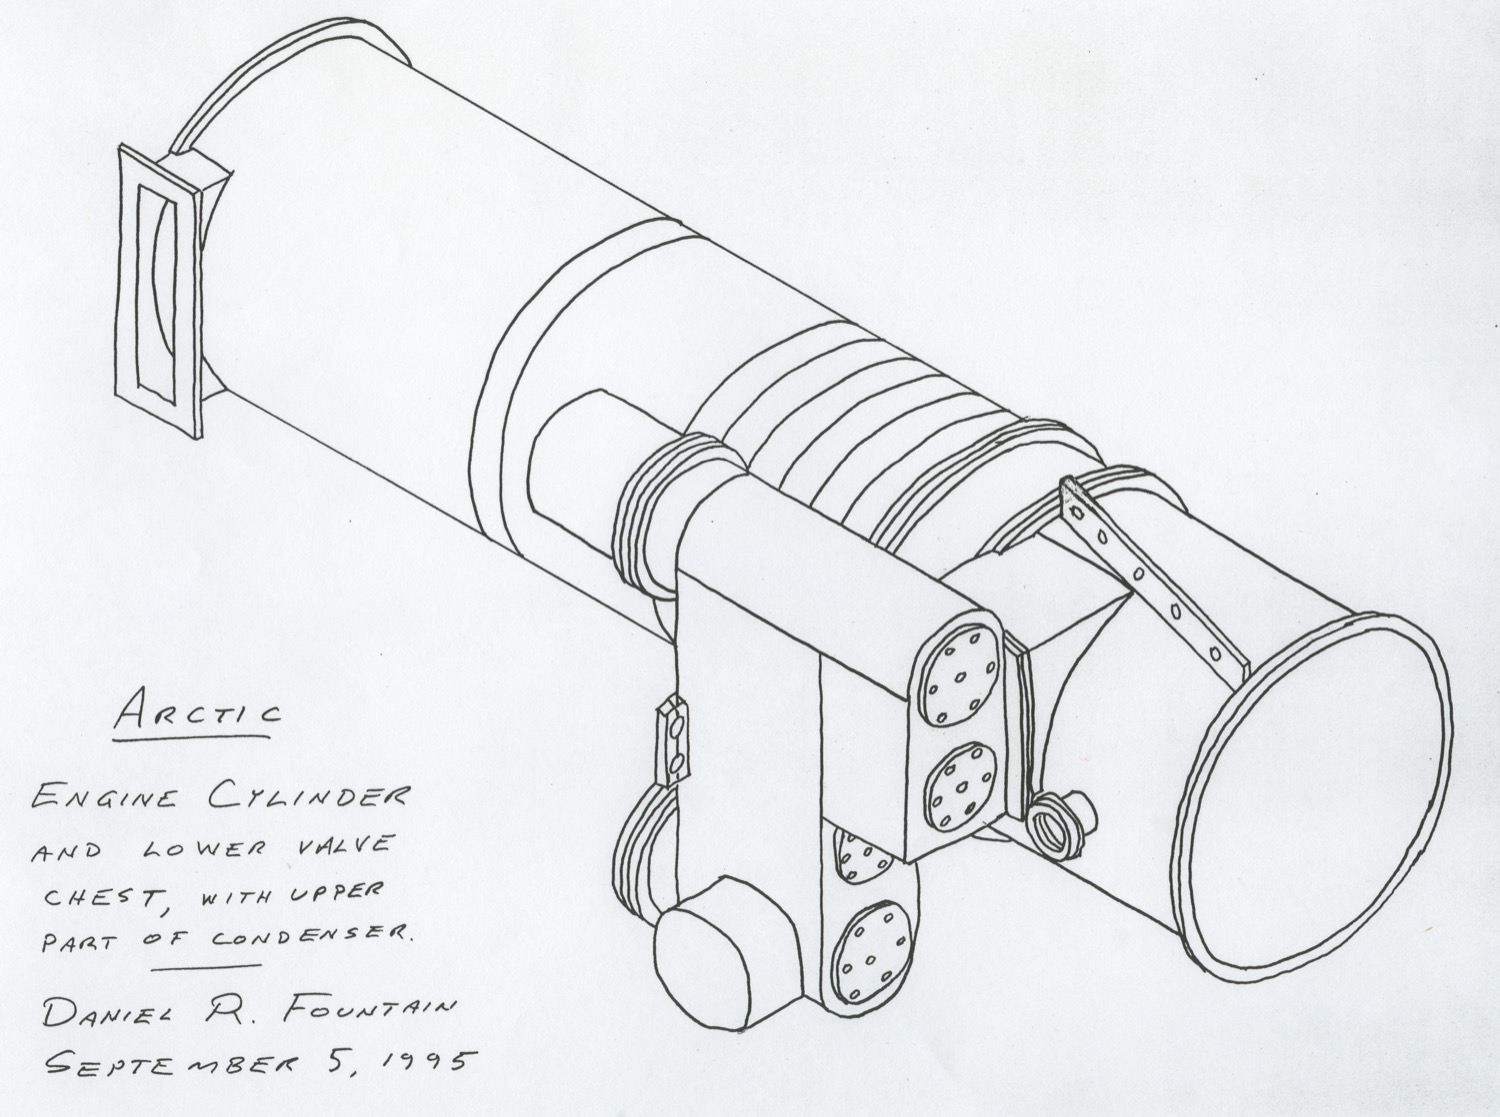 ARCTIC
ENGINE CYLINDER
AND LOWER VALVE
CHEST, WITH UPPER
PART OF CONDENSER.
DANIEL R. FOUNTAIN
SEPTEMBER 5, 1995